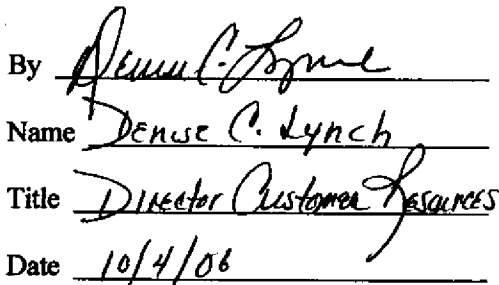 By Denise C. Lynch
Name Denise C. Lynch
Title Director Customer Resources
Date 10/4/06